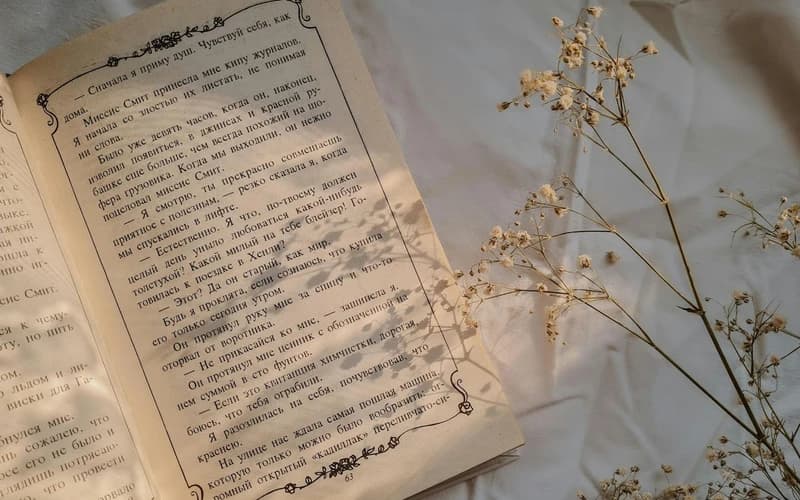 иссис Смит.
ся к чему-
но пить
льдом и ли-
виски для Га-
бнулся мне.
сожалею, что
его не было и
глядишь потрясаю-
что провести
— Сначала я приму душ. Чувствуй себя, как
дома.
Миссис Смит принесла мне кипу журналов.
Я начала со злостью их листать, не понимая
ни слова.
Было уже девять часов, когда он, наконец,
изволил появиться, в джинсах и красной ру-
башке еще больше, чем всегда похожий на шо-
фера грузовика. Когда мы выходили, он нежно
поцеловал миссис Смит.
— Я смотрю, ты прекрасно совмещаешь
приятное с полезным, — резко сказала я, когда
мы спускались в лифте.
— Естественно. Я что, по-твоему должен
целый день уныло любоваться какой-нибудь
толстухой? Какой милый на тебе блейзер! Го-
товилась к поездке в Хенли?
— Этот? Да он старый, как мир.
Будь я проклята, если сознаюсь, что купила
его только сегодня утром.
Он протянул руку мне за спину и что-то
оторвал от воротника.
— Не прикасайся ко мне, — зашипела я.
Он протянул мне ценник с обозначенной на
нем суммой в сто фунтов.
— Если это квитанция химчистки, дорогая,
боюсь, что тебя ограбили.
Я разозлилась на себя, почувствовав, что
краснею.
На улице нас ждала самая пошлая машина,
которую только можно было вообразить, ог-
ромный открытый «кадиллак» переливчато-си-
63